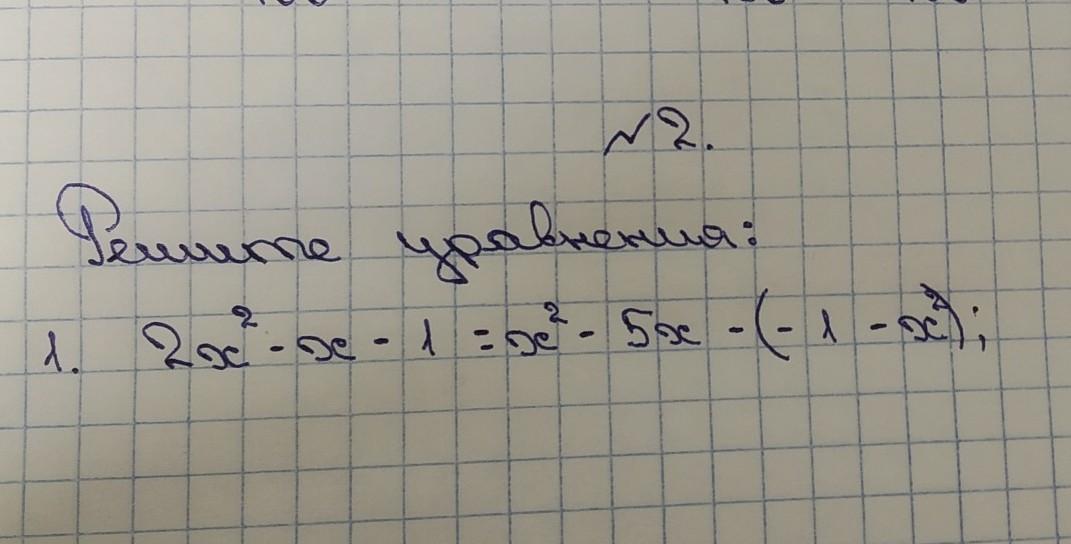 №2.
Решите уравнения:
1. 2x² - x - 1 = x² - 5x - (- 1 - x²);